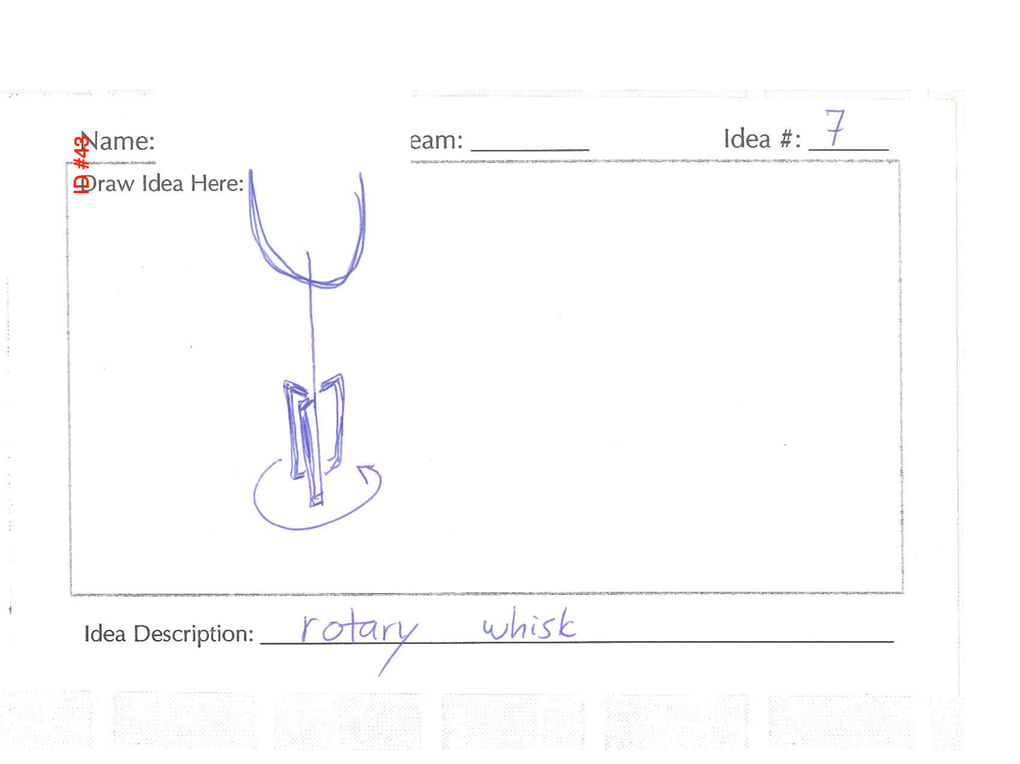 ID #43
Name: eam: Idea #: 7
Draw Idea Here:
Idea Description: rotary whisk